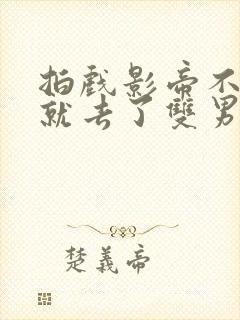 拍戲影帝不
就去了雙男
楚義帝